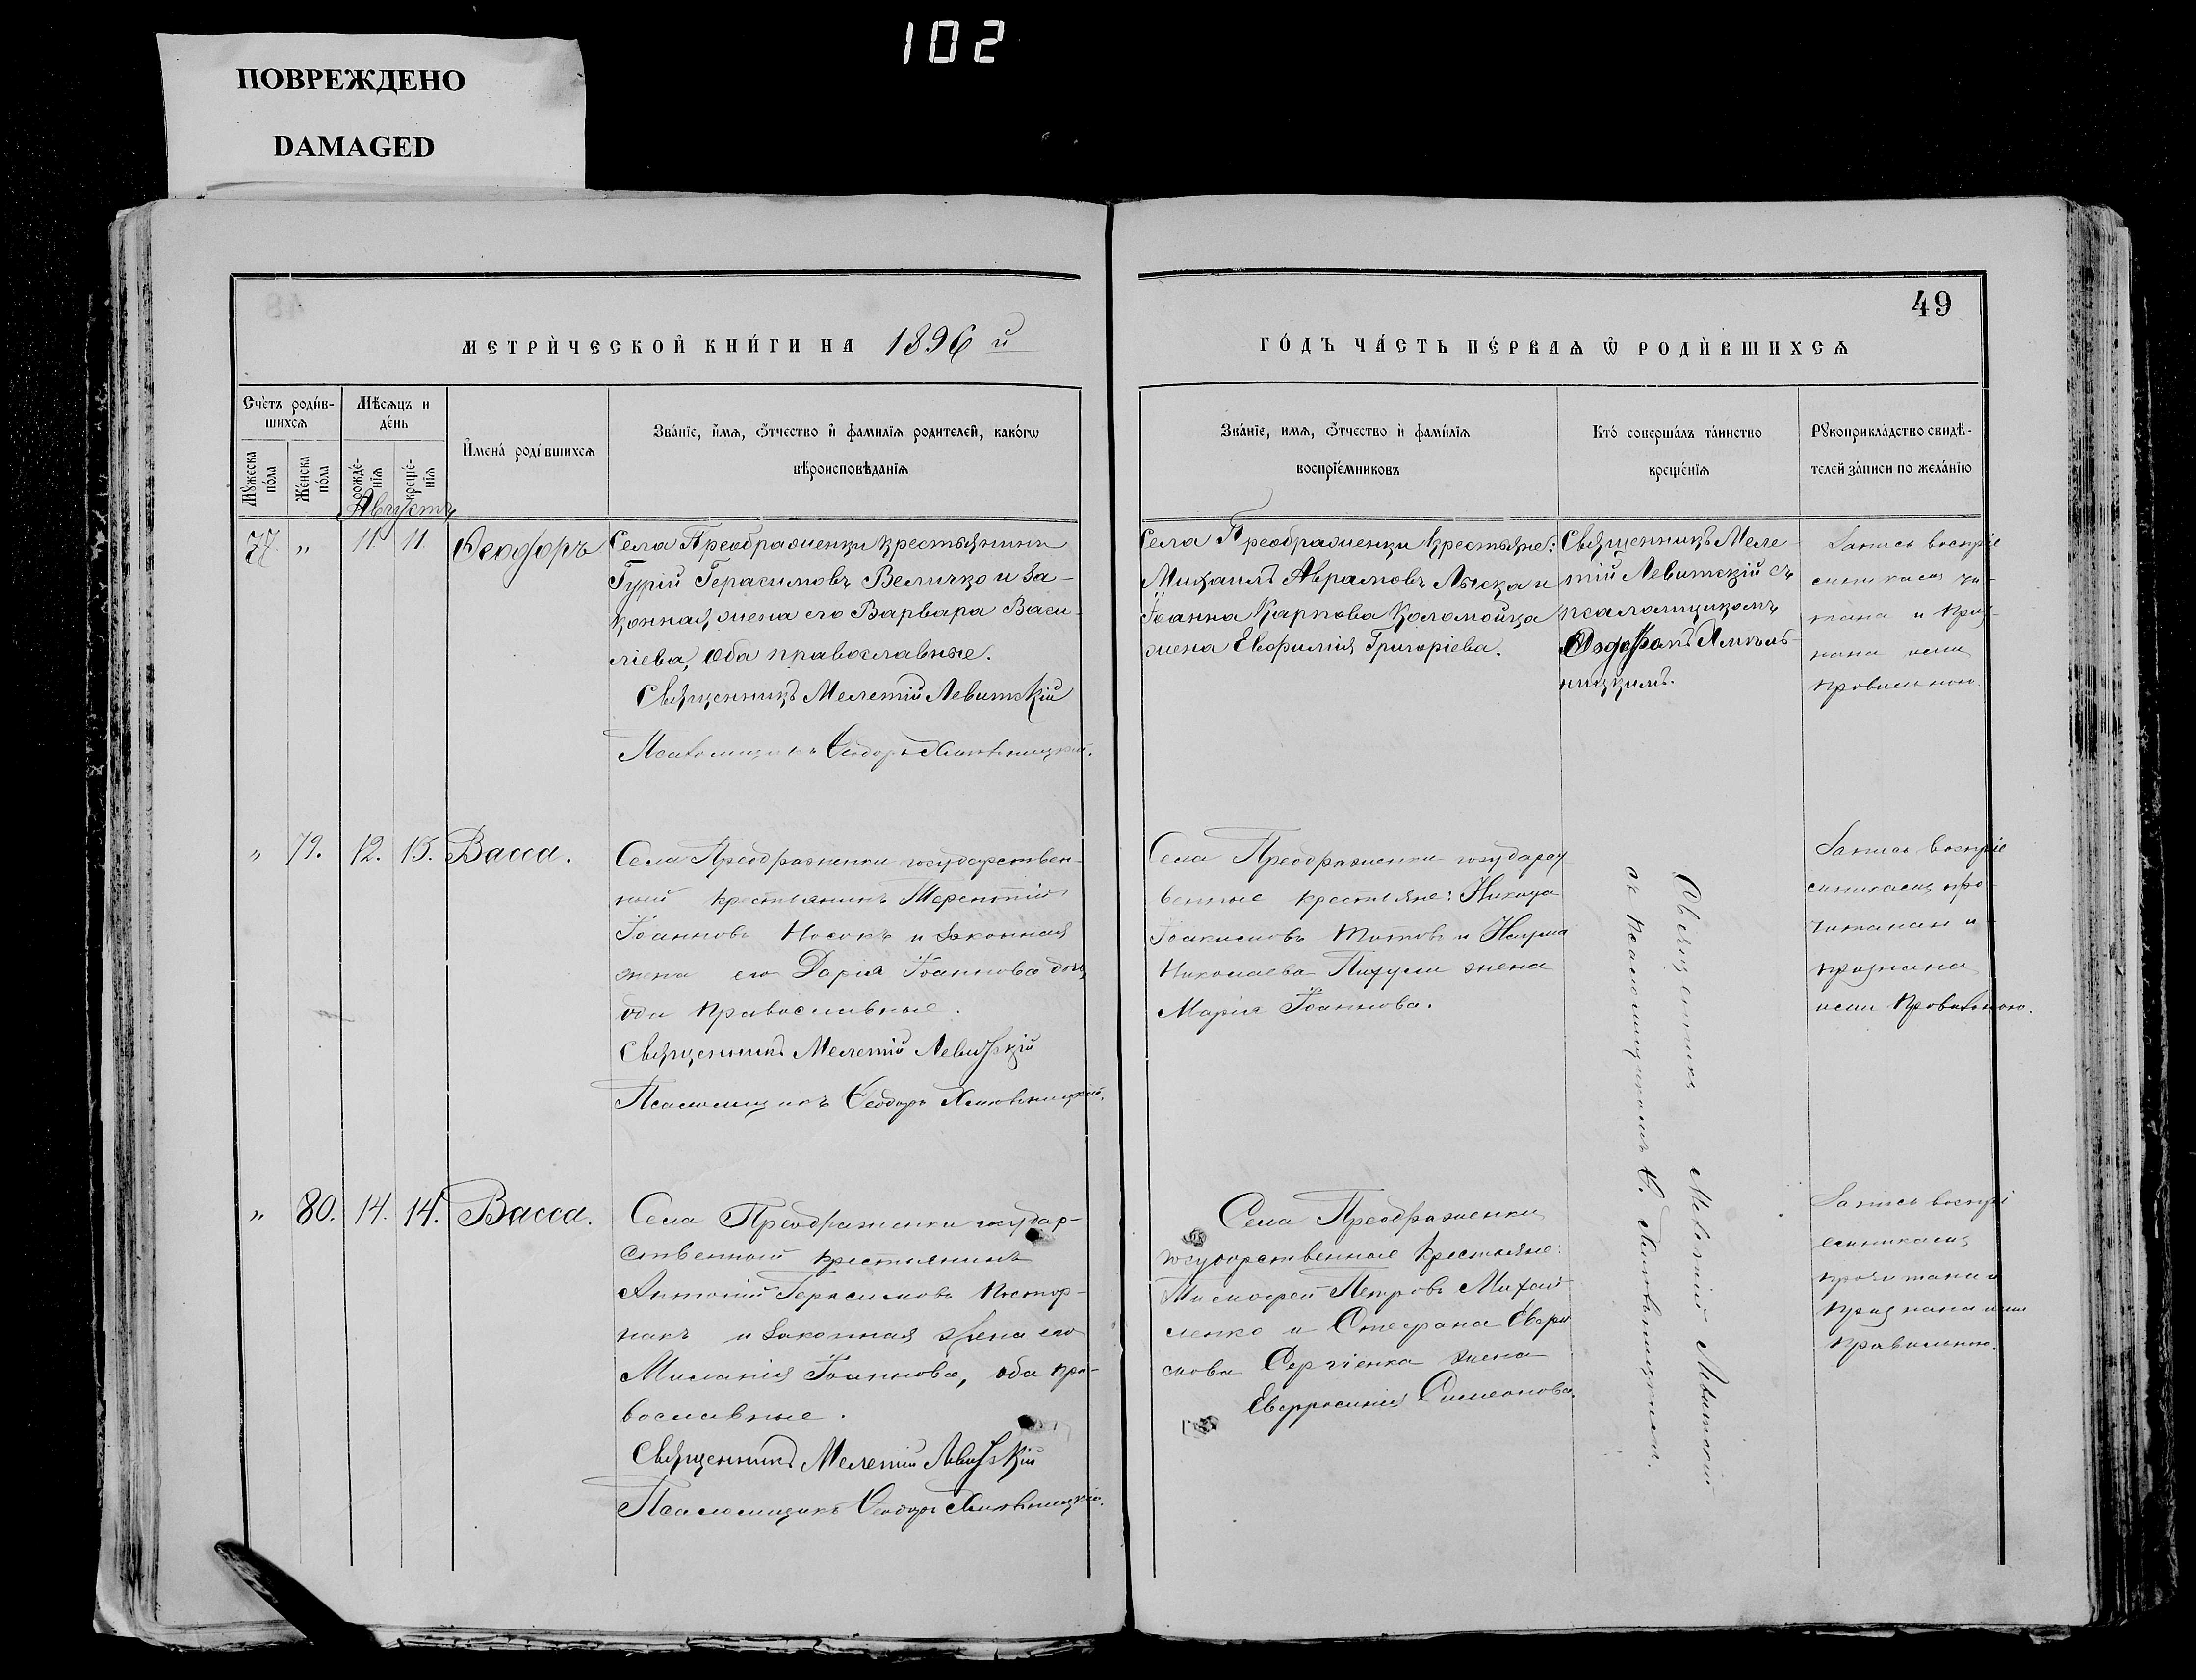 102
ПОВРЕЖДЕНО
DAMAGED
49
МЕТРИ́ЧЕСКОЙ КНИ́ГИ НА 1896 й
ГО́ДЪ ЧА́СТЬ ПЕ́РВАѦ Ѿ РОДИ́ВШИХСѦ
Сче́тъ роди́в-
шихсѧ
Мꙋ́жеска по́ла
Же́нска по́ла
Мѣ́сѧцъ и
де́нь
рожде́-
нїѧ
креще́-
нїѧ
Августъ
Имена́ роди́вшихсѧ
Зва́нїе, и́мѧ, ѻ́тчество и фами́лїѧ роди́телей, како́гѡ
вѣроисповѣ́данїѧ
Зва́нїе, и́мѧ, ѻ́тчество и фами́лїѧ
воспрїе́мниковъ
Кто́ соверша́лъ та́инство
креще́нїѧ
Рꙋкоприкла́дство свидѣ́-
телей за́писи по жела́нїю
77. " 11. 11. Ѳеодоръ
Села Преображенки крестьянинъ
Гурій Герасимовъ Величко и за-
конная жена его Варвара Васи-
ліева, оба православные.
Священникъ Мелетій Левитскій
Псаломщикъ Ѳеодоръ Хмѣльницкій.
Села Преображенки крестьяне:
Михаилъ Аврамовъ Лыска и
Іоанна Карпова Коломойца
жена Евфимія Григоріева.
Священникъ Меле-
тій Левитскій съ
псаломщикомъ
Хмѣль-
ницкимъ.
Запись воспріе
емникамъ чи-
тана и приз-
нана ими
правильною.
" 79. 12. 15. Васса.
Села Преображенки государствен-
ный крестьянинъ Терентій
Іоанновъ Носокъ и законная
жена его Дарія Іоаннова
оба православные.
Священникъ Мелетій Левитскій
Псаломщикъ Ѳеодоръ Хмѣльницкій.
Села Преображенки государст
венные крестьяне: Никита
Іоакимовъ Титовъ и Наума
Николаева жена
Марія Іоаннова.
Запись воспріе
емникамъ про-
читана и
признана
ими правильною.
Священникъ Мелетій Левитскій
съ псаломщикомъ Ѳ. Хмѣльницкимъ.
" 80. 14. 14. Васса.
Села Преображенки государ-
ственный крестьянинъ
Антоній Герасимовъ Постор-
накъ и законная жена его
Миланія Іоаннова, оба пра-
вославные.
Священникъ Мелетій Левитскій
Псаломщикъ Ѳеодоръ Хмѣльницкій.
Села Преображенки
государственные крестьяне:
Тимофей Петровъ Михай
ленко и Стефана Евфи
мова Сергіенка жена
Евфросинія Симеонова.
Запись воспрі
емникамъ
прочитана и
признана ими
правильною.